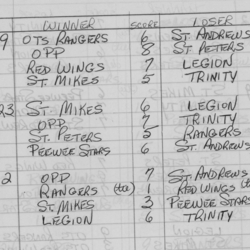 WINNER SCORE LOSER
9 OTS RANGERS 6 ST. ANDREWS
OPP 8 ST. PETERS
RED WINGS 7 LEGION
ST. MIKES 5 TRINITY
23 ST. MIKES 6 LEGION
OPP 7 TRINITY
ST. PETERS 5 RANGERS
PEEWEE STARS 6 ST. ANDREWS
2 OPP 7 ST. ANDREWS
RANGERS (to) 1 RED WINGS (t
ST. MIKES 3 PEEWEE STARS
LEGION 6 TRINITY